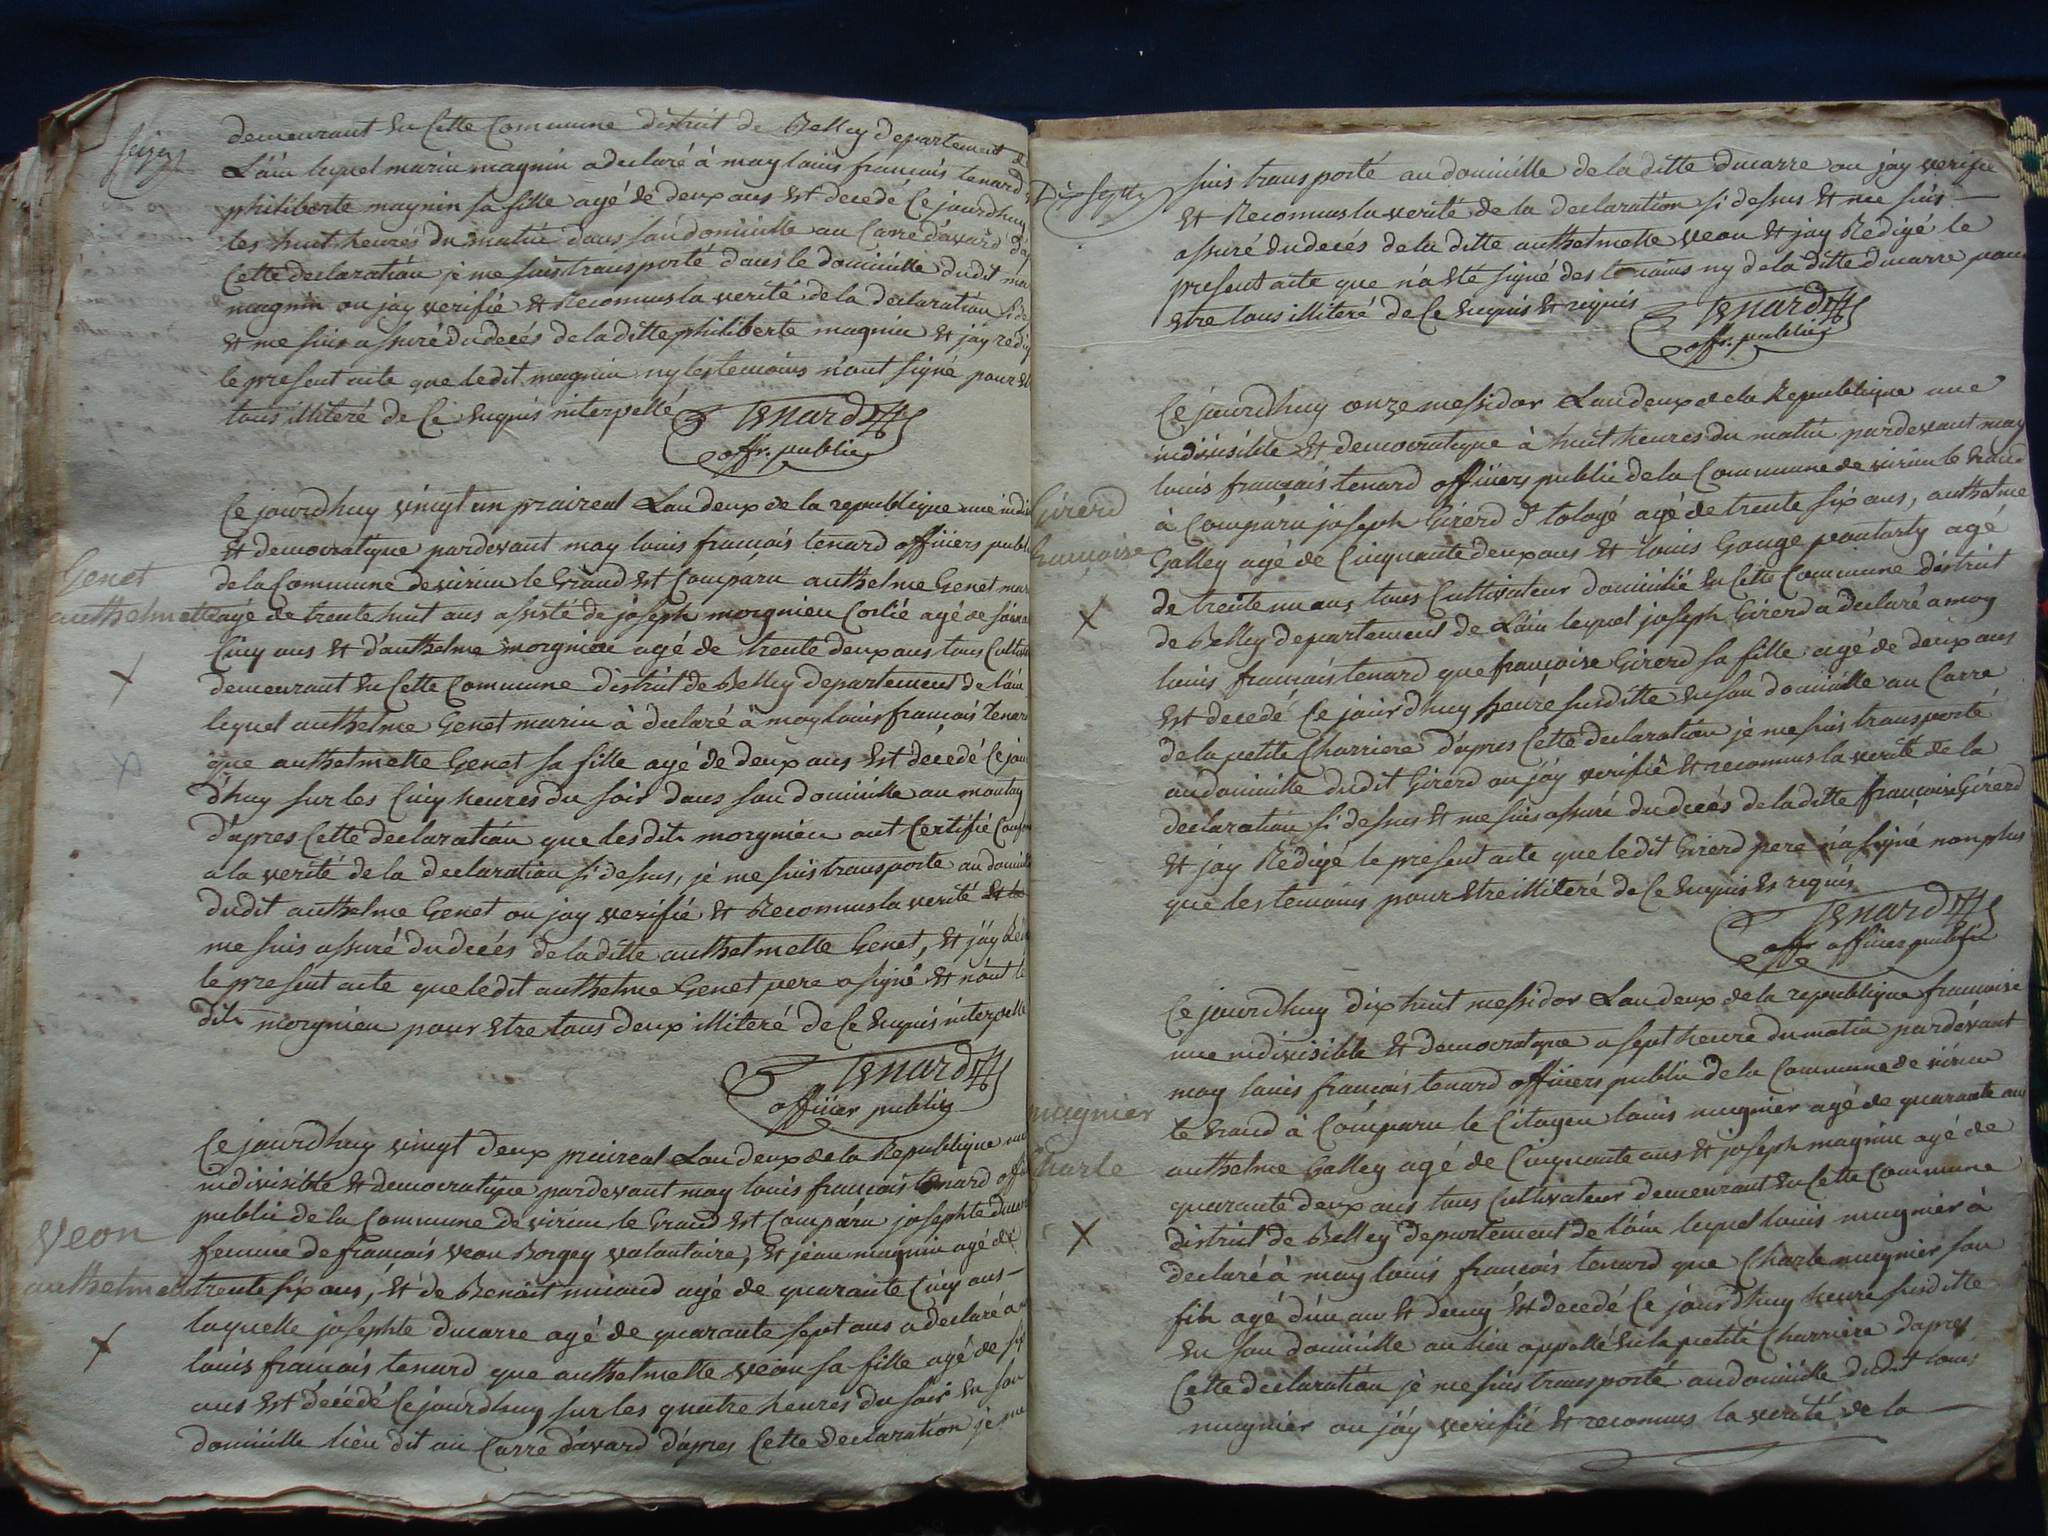 Seize
demeurant En Cette Commune district de Belley departement de
L'ain lequel marin magnin a declaré à moy louis francois tenard
philiberte magnin sa fille agé de deux ans Est decedé Ce jourdhuy
les huit heures du matin dans son domicille au Carre d'avard
Cette declaration je me suis transporté dans le domicille dudit
magnin ou jay verifié Et Reconnus la verité de la declaration
Et me suis assuré du decés de la ditte philiberte magnin Et jay
le present acte que ledit magnin ny les temoins n'ont signé pour
tous illiteré de Ce Enquis interpellé
tenard
offr. public
Genet
anthelmette
Ce jourdhuy vingt un praireal Lan deux de la republique une
Et democratique pardevant moy louis francois tenard officiers
de la Commune de virieu le Grand Est Comparu anthelme Genet
agé de trente huit ans assisté de joseph morgnieu agé de
Cinq ans Et d'anthelme morgnieu agé de trente deux ans tous
demeurant En Cette Commune district de Belley departement de l'ain
lequel anthelme Genet marin à declaré à moy louis francois
que anthelmette Genet sa fille agé de deux ans Est décédé Ce
d'huy sur les Cinq heures du soir dans son domicille au
d'apres Cette declaration que lesdits morgnieu ont Certifié
a la verité de la declaration si dessus, je me suis transporté au
dudit anthelme Genet ou jay verifié Et Reconnus la verité Et
me suis assuré du decés de la ditte anthelmette Genet, Et j'ay
le present acte que ledit anthelme Genet pere a signé Et n'ont
dits morgnieu pour Etre tous deux illiteré de Ce Enquis interpellé
tenard
officier public
veon
anthelmette
Ce jourdhuy vingt deux praireal Lan deux de la Republique
indivisible Et democratique pardevant moy louis francois tenard
public de la Commune de virieu le Grand Est Comparu josephte
femme de francois veon Borgey volontaire, Et jean magnin agé de
trente six ans, Et de Benoit micaud agé de quarante Cinq ans
laquelle josephte ducarre agé de quarante sept ans a declaré a
louis francois tenard que anthelmette veon sa fille agé de
ans Est décédé Ce jourdhuy sur les quatre heures du soir En son
domicille lieu dit au Carré d'avard d'apres Cette declaration je me
Dix sept
suis transporté au domicille de la ditte ducarre ou jay verifié
Et Reconnus la verité de la declaration si dessus Et me suis
assuré du decés de la ditte anthelmette veon Et jay Redigé le
present acte que n'a Eté signé des temoins ny de la ditte ducarre pour
Etre tous illiteré de Ce Enquis Et requis
tenard
offr. public
Girerd
francoise
Ce jourdhuy onze messidor Lan deux de la Republique une
indivisible Et democratique à huit heures du matin pardevant moy
louis francois tenard officiers public de la Commune de virieu le Grand
à Comparu joseph Girerd agé de trente six ans, anthelme
Galley agé de Cinquante deux ans Et louis Gouge agé
de trente un ans, tous Cultivateur domicilié En Cette Commune district
de Belley departement de L'ain lequel joseph Girerd a declaré a moy
louis francois tenard que francoise Girerd sa fille agé de deux ans
Est decedé Ce jourdhuy heure susditte En son domicille au Carre
de la petite Charriere d'apres Cette declaration je me suis transporté
au domicille dudit Girerd ou jay verifié Et reconnus la verité de la
declaration si dessus Et me suis assuré du decés de la ditte francoise Girerd
Et jay Redigé le present acte que ledit Girerd pere n'a signé non plus
que les temoins pour Etre illiteré de Ce Enquis Et requis
tenard
offr officier public
mugnier
Charle
Ce jourdhuy dix huit messidor Lan deux de la republique francoise
une indivisible Et democratique a sept heure du matin pardevant
moy louis francois tenard officiers public de la Commune de virieu
le Grand à Comparu le Citoyen louis mugnier agé de quarante ans
anthelme Galley agé de Cinquante ans Et joseph magnin agé de
quarante deux ans tous Cultivateur demeurant En Cette Commune
district de Belley departement de l'ain lequel louis mugnier à
declaré à moy louis francois tenard que Charle mugnier son
fils agé d'un an Et demy Est decedé Ce jourdhuy heure susditte
En son domicille au lieu appellé En la petite Charriere d'apres
Cette declaration je me suis transporté au domicille dudit louis
mugnier ou j'ay verifié Et reconnus la verité de la